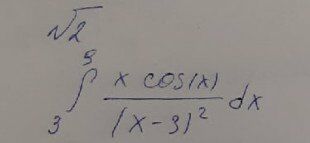 √2
∫₃⁹ x cos(x) / (x-3)² dx